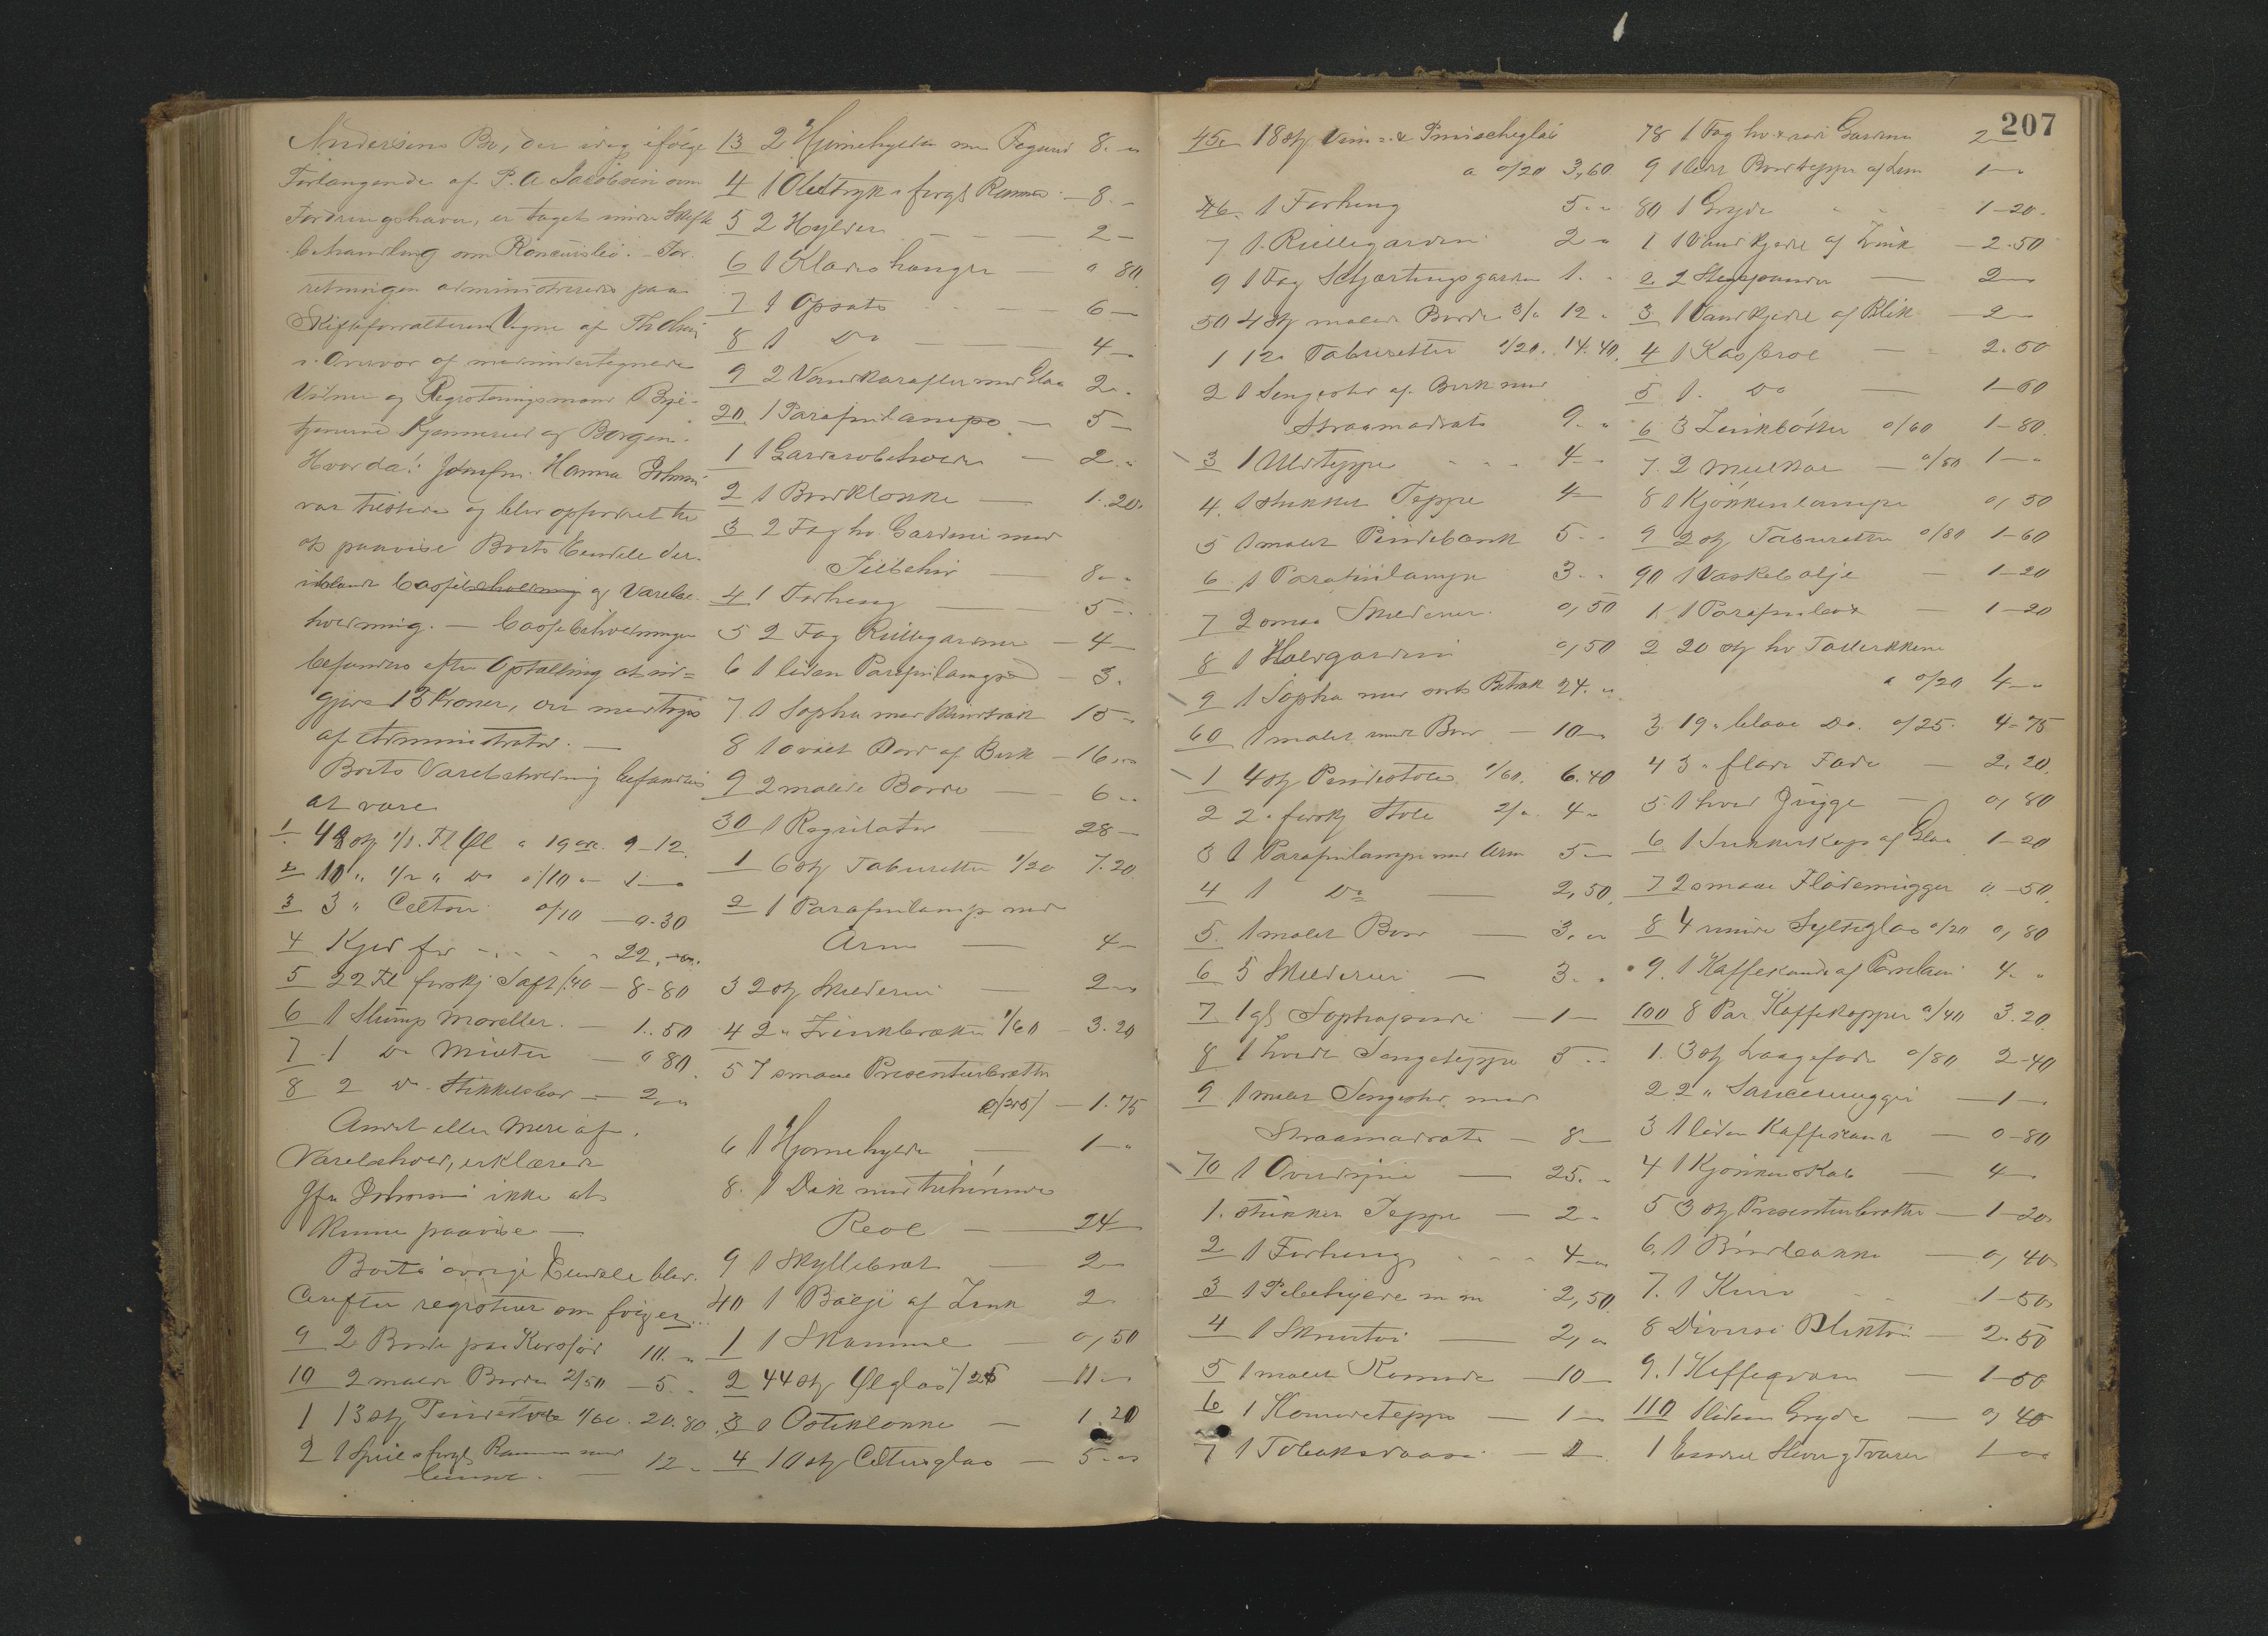 Andersens Bo, der idag ifölge
Forlangende af P. A. Jacobsen som
Fordringshaver, er taget under Skifte
behandling som Konkursbo. – For
retningen administreredes paa
Skifteforvalterens Vegne af Th Olsen
i Overvær af medundertegnede
Vidner og Registreringsmænd By-
tjenerne Kjennerud og Borgen.
Hvorda: Jomfru Hanna Johnsen
var tilstede og blev opfordret til
at paavise Boets Eiendele der
iblandt Cassebeholdning og Varebe-
holdning. – Cassebeholdningen
befandtes efter Optælling at ud=
gjøre 13 Kroner, der medtoges
af Administrator. –
Boets Varebeholdning befandtes
at være
1 48 stk 1/1 Fl Øl a 19 øre 9-12
2 10 " 1/2 " Do 0/10 1 –
3 3 " Celtser 0/10 – 0.30
4 Kjød for 22, –
5 22 Fl forskj Saft /40 – 8-80
6 1 Slump Moreller – 1.50
7 1 Do – 0 80
8 2 Do Stikkelsbær – 2 "
Andet eller mere af
Varebehold, erklærede
Jfr Johnsen ikke at
kunne paavise –
Boets øvrige Eiendele blev
derefter registreret som følger
9 2 Borde paa Korsfod 10. "
10 2 malede Borde 2/50 – 5. "
1 13 stk Pindestole 1/60 20.80
2 1 Speil i forgl Ramme med
12 "
13 2 Hjørnehylder med Fogund 8. "
4 1 Oletryk i forgl Ramme – 8. –
5 2 Hylder – 2 –
6 1 Klædeshænger – " 80
7 1 Opsats 6 –
8 1 Do 4 –
9 2 Vandkarafler med Glas 2 "
20. 1 Parafinlampe – 5 –
1 1 Garderobeholder – 2 "
2 1 Bordklokke – 1.20
3 2 Fag hv. Gardiner med
Tilbehør – 8 "
4 1 Forheng – 5 –
5 2 Fag Rullegardiner – 4 –
6 1 liden Parafinlampe – 3.
7 1 Sopha med Skindtræk 15 "
8 1 ovalt Bord af Birk – 16 "
9 2 malede Borde – 6 "
30 1 Regulator 28 –
1 6 stk Taburetter 1/20 7.20
2 1 Parafinlampe med
Arm – 4 –
3 2 stk Skilderier – 2 "
4 2 " Zinkbrækker 1/60 – 3.20
5 7 smaa Presenterbrætter
0/25 – 1.75
6 1 Hjørnehylde – 1 "
8. 1 Disk med tilhørende
Reol – 24 –
9 1 Skyllebræt – 2 –
40 1 Balje af Zink 2
1 1 Skammel – 0,50
2 44 stk Ølglas /25 – 11 "
3 1 Osteklokke – 1.20
4 10 stk Celtersglas – 5 "
207
45. 18 stk Vin= & Punscheglas
a 0/20 3,60
46. 1 Forheng 5 "
7 1 Rullegardin 2 "
9 1 Fag Schjertingsgardin 1. "
50 4 stk malede Borde 3/" 12 "
1 12 " Taburetter 1/20. 14.40
2 1 Sengested af Birk med
Straamadrats 9. "
3 1 Uldteppe 4 –
4. 1 stukket Teppe 4 –
5 1 malet Pindebænk 5 "
6. 1 Parafinlampe 3 "
7 2 smaa Skilderier 0,50
8 1 Halvgardin 0,50
9 1 Sopha med sort Betræk 24. "
60 1 malet rundt Bord – 10 "
1 4 stk Pindestole 1/60. 6.40
2 2 " forskj Stole 2/" 4 "
3 1 Parafinlampe med Arm 5 –
4 1 Do – 2,50
5. 1 malet Bord – 3. "
6 5 Skilderier – 3. "
7 1 gl Sophapude – 1 –
8 1 hvidt Sengeteppe 5 "
9 1 malet Sengested med
Straamadrats – 8 –
70 1 Overdyne – 25. "
1. stukket Teppe – 2 "
2 1 Forheng 4 "
3 1 Pibehylde m m 2,50
4 1 Skrivetøi – 2, "
5 1 malet Komode – 10 –
6 1 Komodeteppe – 1 –
7 1 Tobaksdaase – 1
78 1 Fag hv & rød Gardine 2
9 1 Bordteppe af 1 –
80 1 Gryde 1-20.
1 1 Vandkjedel af Zink – 2.50
2 2 Stegepander – 2 –
3 1 Vandkjedel af Blik – 2 –
4 1 Kasserol – 2.50
5 1. Do – 1-60
6 3 Zinkbøtter 0/60 1-80
7. 2 – 0/50 1 –
8 1 Kjøkkenlampe 0,50
9 2 stk Taburetter 0/80 1-60
90 1 Vaskebalje – 1-20
1. 1 – 1-20
2 20 stk hv Tallerkkener
a 0/20 4 –
3 19 " blaae Do. 0/25. 4-75
4 3 " flade Fade – 2.20
5 1 hvid Mugge – 0,80
6 1 Sukkerkop af Glas 1-20
7 2 smaae Flødemugger 0.-50
8 4 runde Sylteglas 0/20 0,80
9. 1 Kaffekande af Porselain 4. "
100 8 Par Kaffekopper 0/40 3.20
1. 3 stk Laagefade 0/80 2-40
2 2 " Saucemugger – 1 –
3 1 liden Kaffekand – 0-80
4 1 Kjøkkenskab – 4 –
5 3 stk Presenterbrætter – 1-20
6. 1 Brødbakke – 0,40
7. 1 Kurv 1-50
8 Diverse Bliktøi – 2.50
9. 1 Kaffeqværn – 1-50
110 1 liden Gryde – 0,40
1 Endel Stentøi 1 –